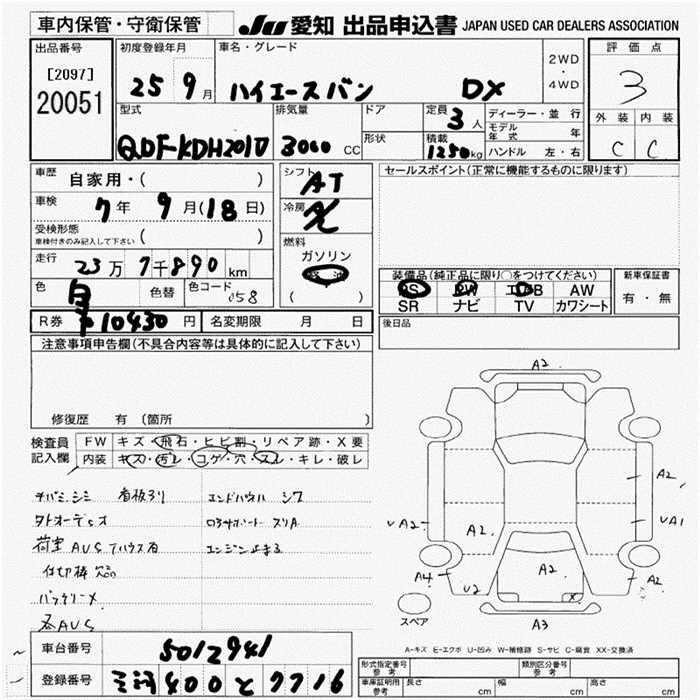 車内保管・守衛保管
JU 愛知 出品申込書 JAPAN USED CAR DEALERS ASSOCIATION
出品番号
[2097]
20051
初度登録年月
25 9月
車名・グレード
ハイエースバン DX
2WD
・
4WD
評価点
3
外装 内装
C C
型式
QDF-KDH201V
排気量
3000 CC
ドア
形状
定員
3人
積載
1250kg
ディーラー・並行
モデル年式 年
ハンドル 左・右
車歴 自家用・( )
車検 7年 9月(18日)
受検形態
車検付きのみ記入して下さい ( )
走行 23万7千890km
色 白 色替 色コード 058
R券 10430円 名変期限 月 日
シフト AT
冷房
燃料
ガソリン
軽油
( )
セールスポイント(正常に機能するものに限ります)
装備品(純正品に限り○をつけてください)
PS PW エアB AW
SR ナビ TV カワシート
新車保証書
有・無
後日品
注意事項申告欄(不具合内容等は具体的に記入して下さい)
修復歴 有(箇所 )
検査員記入欄
FW キズ・飛石・ヒビ割・リペア跡・X要
内装 キズ・汚レ・コゲ・穴・スレ・キレ・破レ
看板ヌリ
シワ
荷室
仕切棒 欠品
バッテリーメ
A2
A2
VA1
A2
A2
A2
A2
A4
U2
A3
X
スペア
A-キズ E-エクボ U-凹み W-補修跡 S-サビ C-腐食 XX-交換済
車台番号 5012941
登録番号 三河400と7716
形式指定番号
参考
類別区分番号
参考
車庫証明用
参考
長さ cm 幅 cm 高さ cm